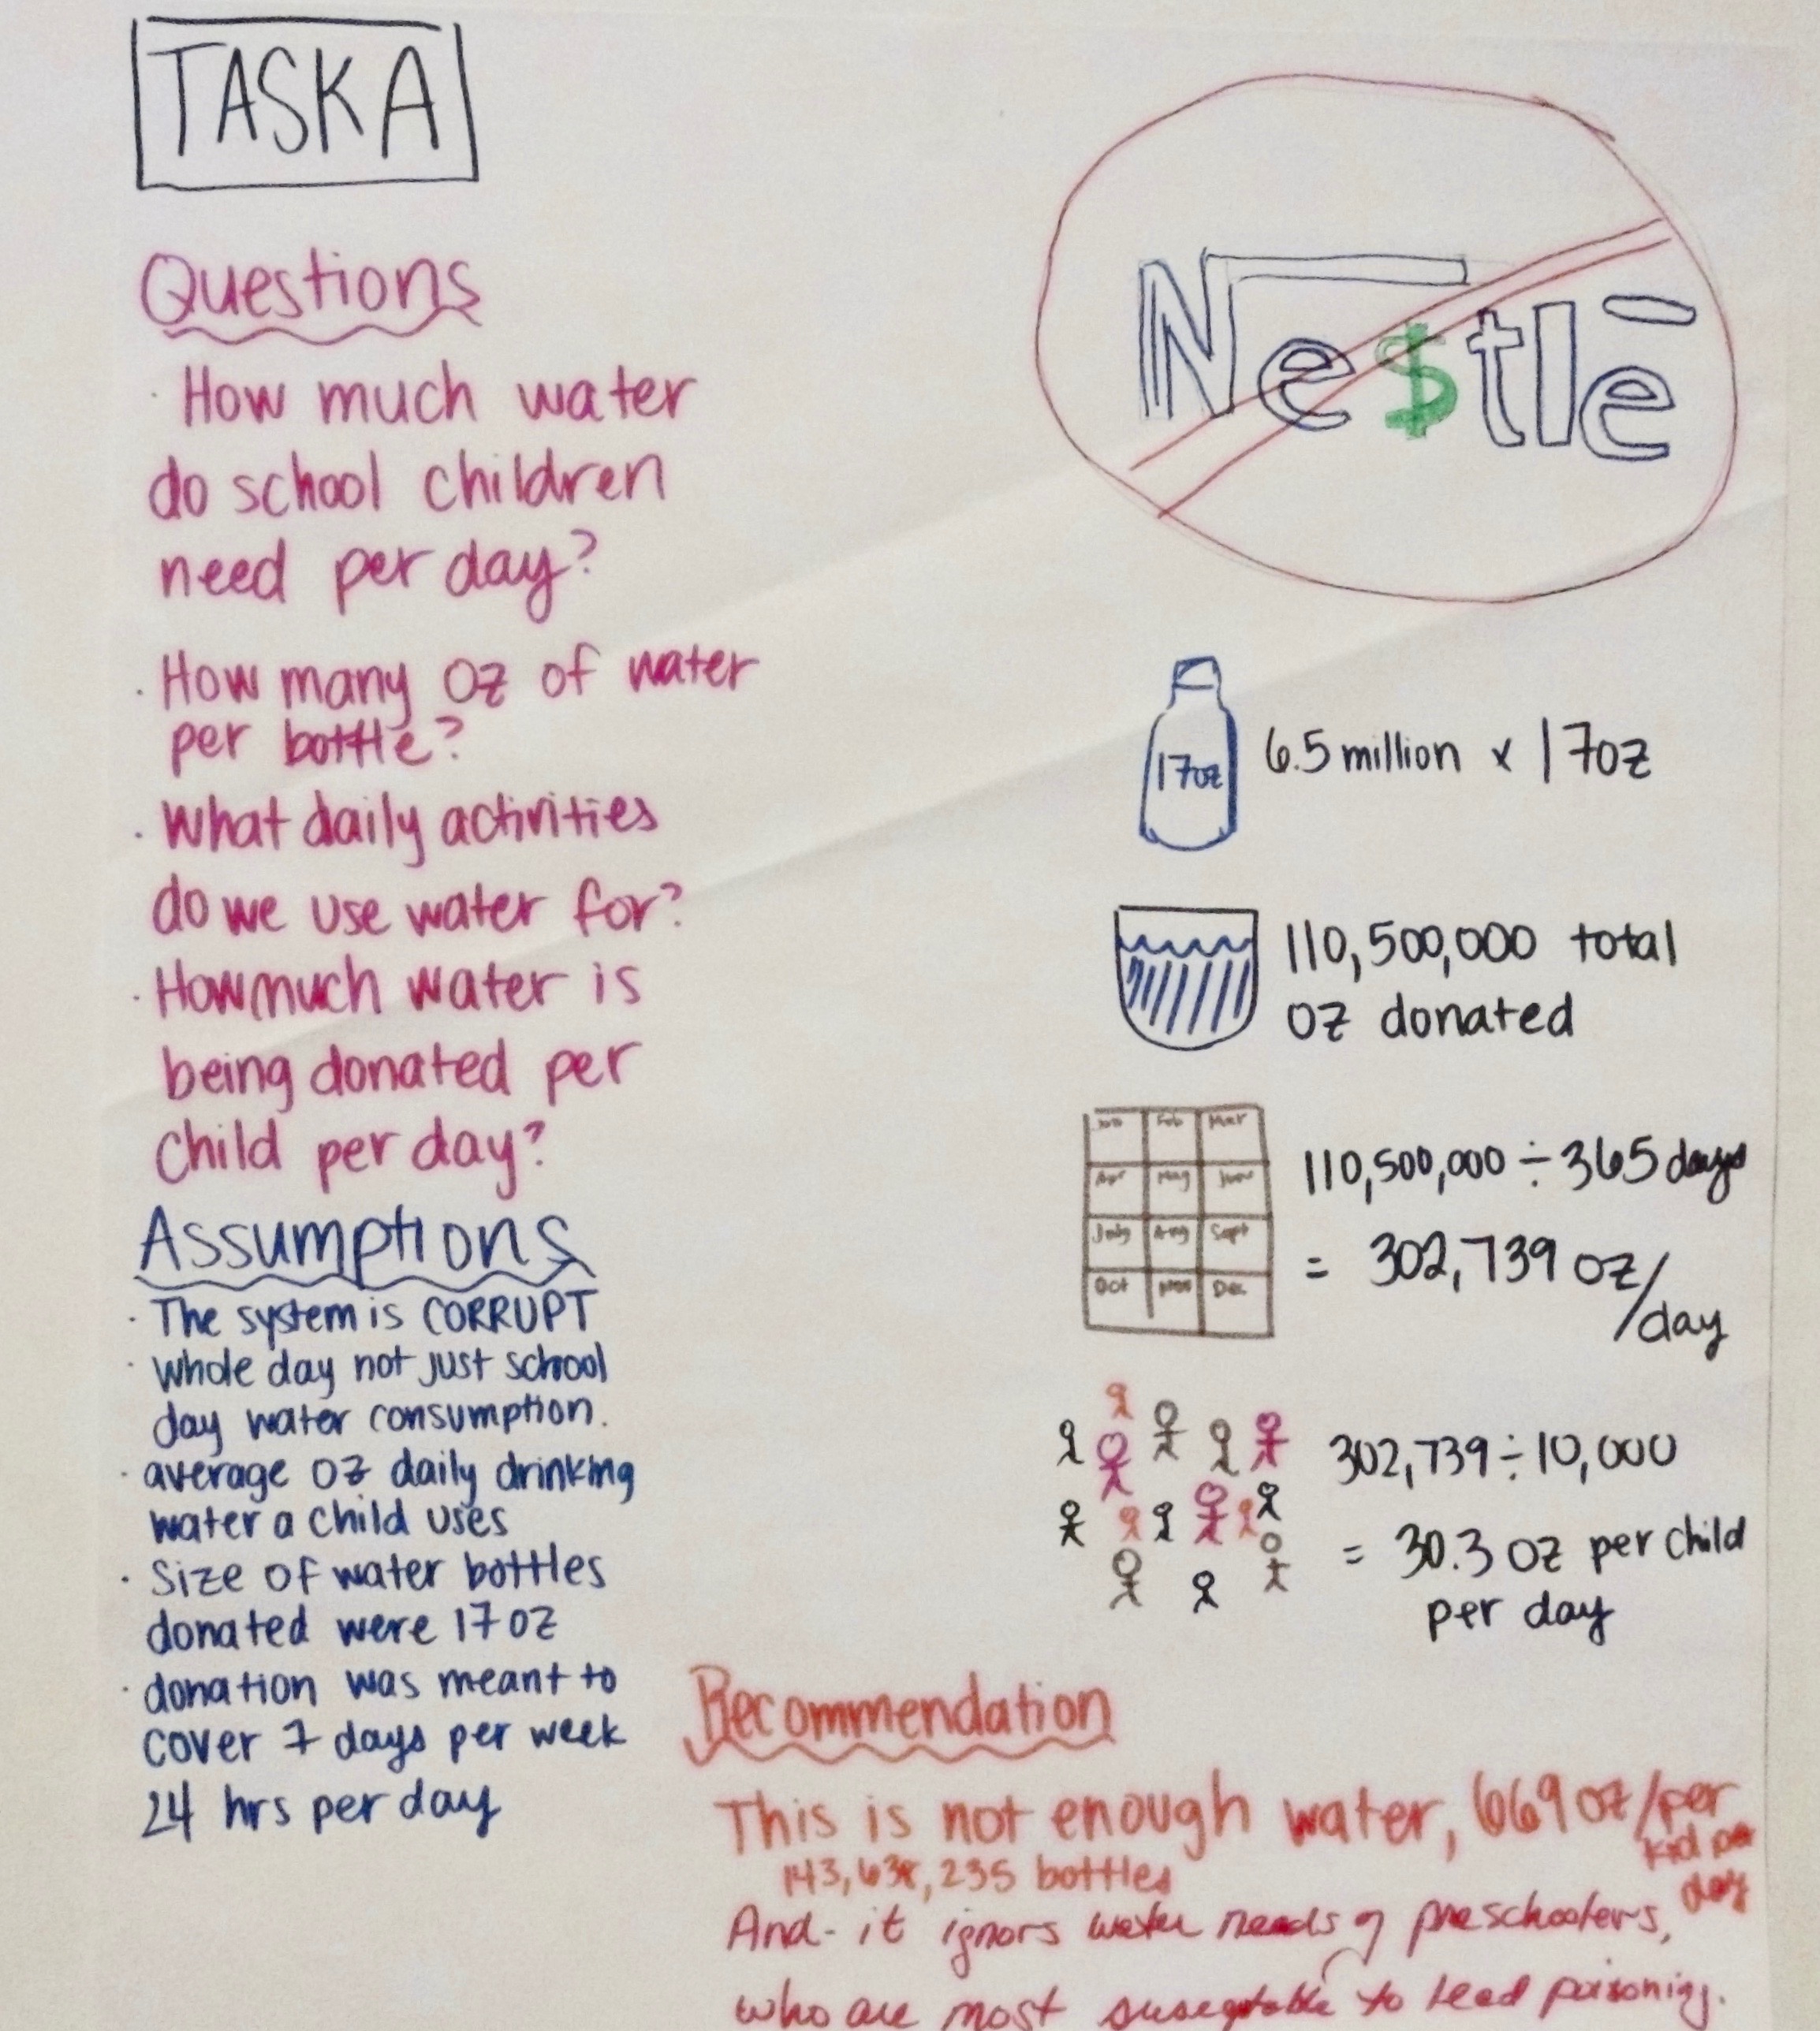 TASK A
Questions
· How much water
do school children
need per day?
· How many oz of water
per bottle?
· What daily activities
do we use water for?
· How much water is
being donated per
child per day?
Assumptions
· The system is CORRUPT
· whole day not just school
day water consumption.
· average oz daily drinking
water a child uses
· Size of water bottles
donated were 17 oz
· donation was meant to
cover 7 days per week
24 hrs per day
Ne$tlē
17oz
6.5 million x 17oz
110,500,000 total
oz donated
Jan Feb Mar
Apr May June
July Aug Sept
Oct Nov Dec
110,500,000 ÷ 365 days
= 302,739 oz/
day
302,739 ÷ 10,000
= 30.3 oz per child
per day
Recommendation
This is not enough water, 669 oz/per
kid per
day
143,638,235 bottles
And - it ignors water needs of preschoolers,
who are most suseptable to lead poisoning.